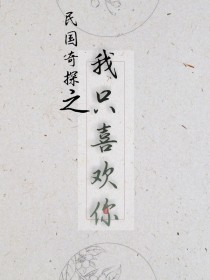 民国奇探之
我只喜欢你